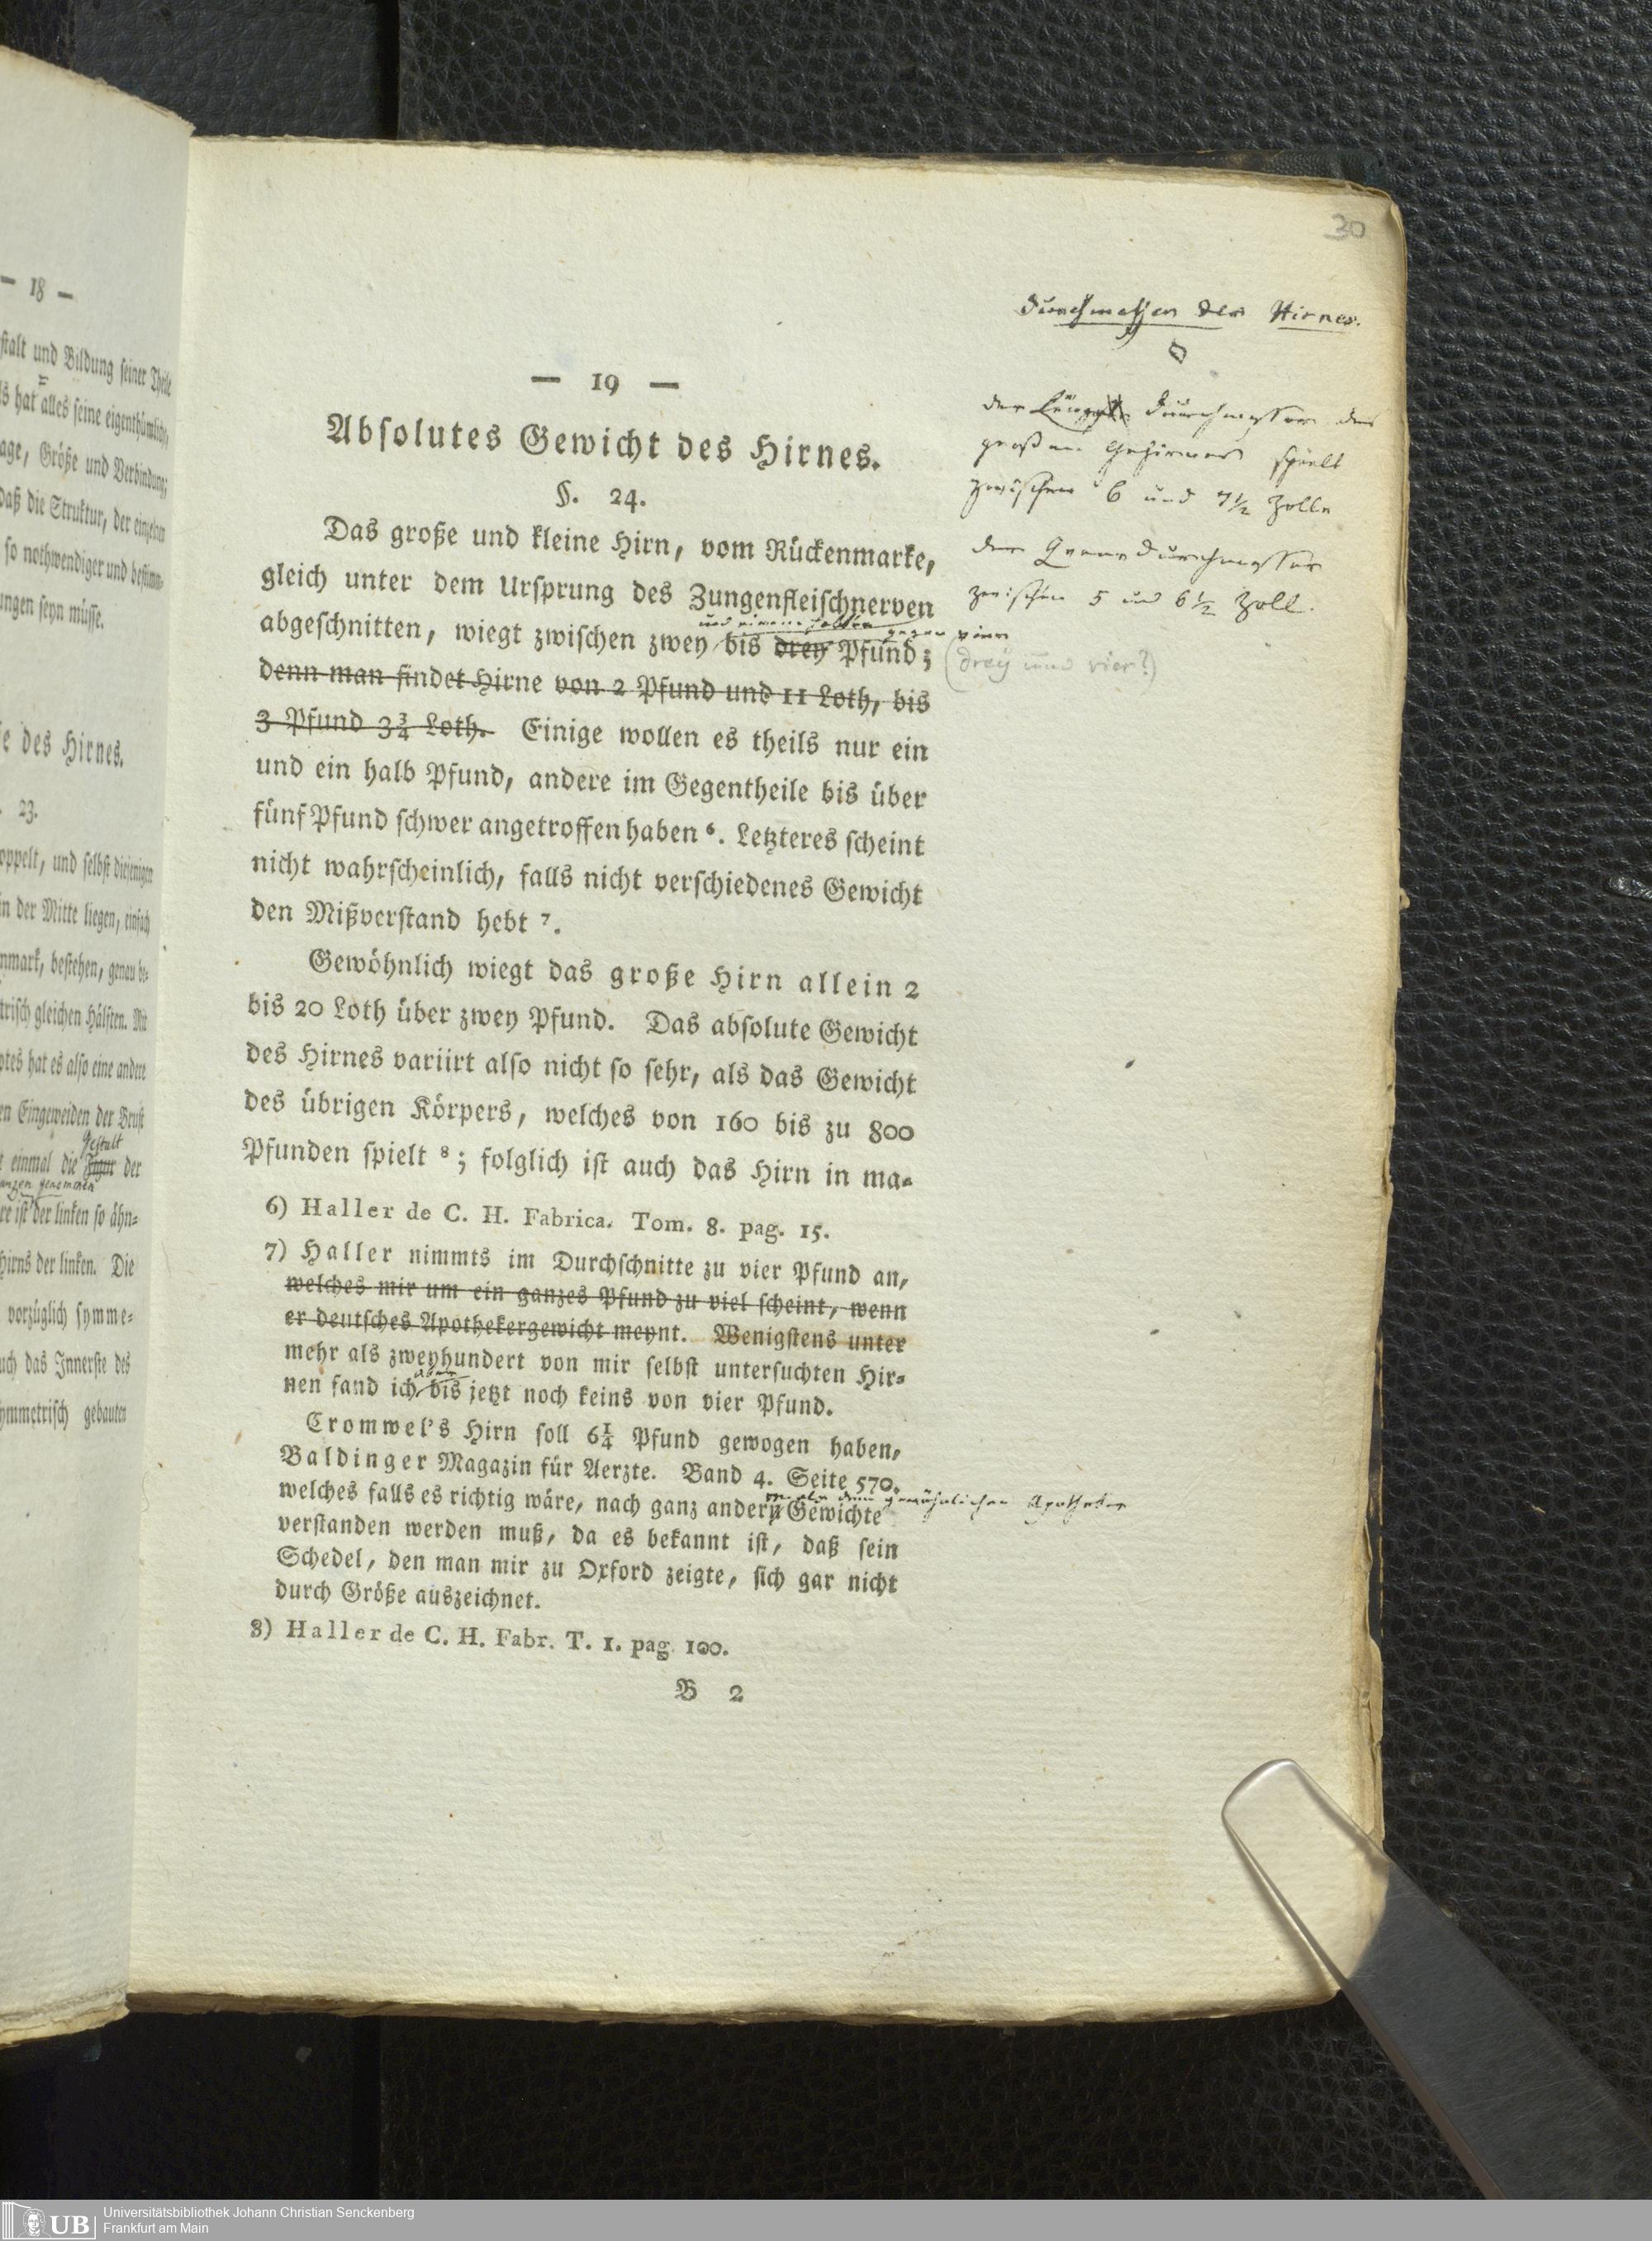 — 18 —
ſtalt und Bildung ſeiner Theile
ls hat alles ſeine eigenthümliche
age, Größe und Verbindung;
daß die Struktur, der einzelnen
ſo nothwendiger und beſtimm-
ungen ſeyn müſſe.
e des Hirnes.
. 23.
oppelt, und ſelbſt diejenigen
in der Mitte liegen, einfach
nmark, beſtehen, genau be-
triſch gleichen Hälften. Mit
ptes hat es alſo eine andere
en Eingeweiden der Bruſt
Gestalt
t einmal die Figur der
genommen
re iſt der linken ſo ähn-
Hirns der linken. Die
vorzüglich ſymme-
uch das Innerſte des
ymmetriſch gebauten
30
Durchmesser des Hirnes.
der Durchmesser des
großen Gehirnes spielt
zwischen 6 und 7½ Zolle
der Queerdurchmesser
zwischen 5 und 6½ Zoll.
— 19 —
Abſolutes Gewicht des Hirnes.
§. 24.
Das große und kleine Hirn, vom Rückenmarke,
gleich unter dem Urſprung des Zungenfleiſchnerven
und einem halben gegen vier
abgeſchnitten, wiegt zwiſchen zwey bis drey Pfund;
(drey und vier?)
denn man findet Hirne von 2 Pfund und 11 Loth, bis
3 Pfund 3¾ Loth. Einige wollen es theils nur ein
und ein halb Pfund, andere im Gegentheile bis über
fünf Pfund ſchwer angetroffen haben ⁶. Letzteres ſcheint
nicht wahrſcheinlich, falls nicht verſchiedenes Gewicht
den Mißverſtand hebt ⁷.
Gewöhnlich wiegt das große Hirn allein 2
bis 20 Loth über zwey Pfund. Das abſolute Gewicht
des Hirnes variirt alſo nicht ſo ſehr, als das Gewicht
des übrigen Körpers, welches von 160 bis zu 800
Pfunden ſpielt ⁸; folglich iſt auch das Hirn in ma-
6) Haller de C. H. Fabrica. Tom. 8. pag. 15.
7) Haller nimmts im Durchſchnitte zu vier Pfund an,
welches mir um ein ganzes Pfund zu viel ſcheint, wenn
er deutſches Apothekergewicht meynt. Wenigſtens unter
mehr als zweyhundert von mir ſelbſt unterſuchten Hir-
aber
nen fand ich bis jetzt noch keins von vier Pfund.
Cromwel's Hirn ſoll 6¼ Pfund gewogen haben,
Baldinger Magazin für Aerzte. Band 4. Seite 570.
als dem gewöhnlichen Apotheker
welches falls es richtig wäre, nach ganz andern Gewichte
verſtanden werden muß, da es bekannt iſt, daß ſein
Schedel, den man mir zu Oxford zeigte, ſich gar nicht
durch Größe auszeichnet.
8) Haller de C. H. Fabr. T. 1. pag. 100.
B 2
UB
Universitätsbibliothek Johann Christian Senckenberg
Frankfurt am Main